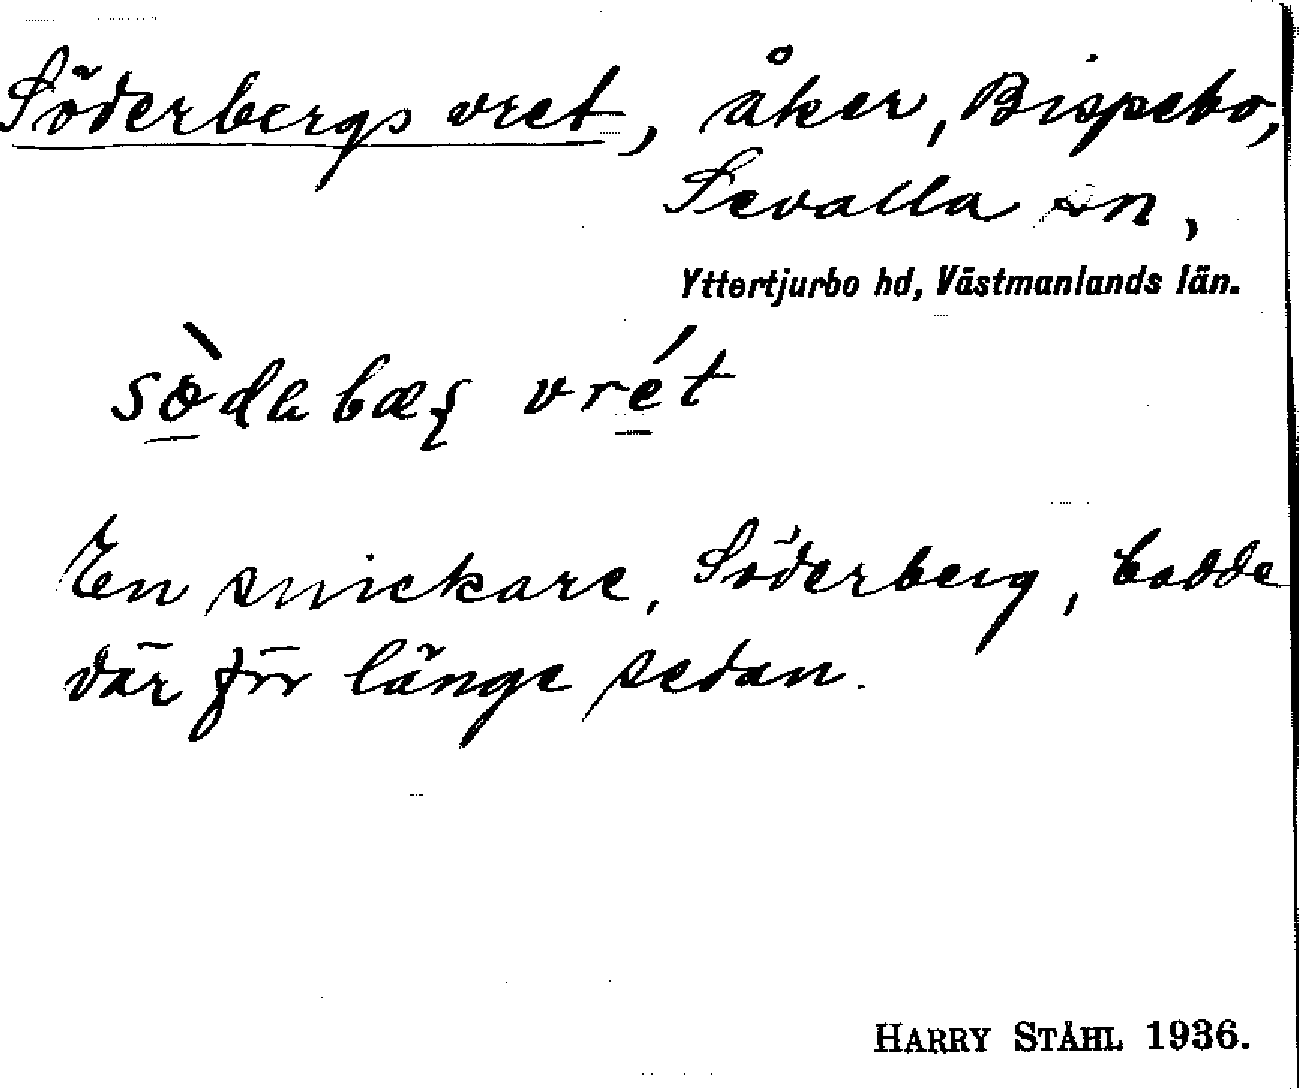 Söderbergs vret, åker, Bispebo,
Sevalla sn,
Yttertjurbo hd, Västmanlands län.
vrét
En snickare, Söderberg, bodde
där för länge sedan.
HARRY STÅHL 1936.